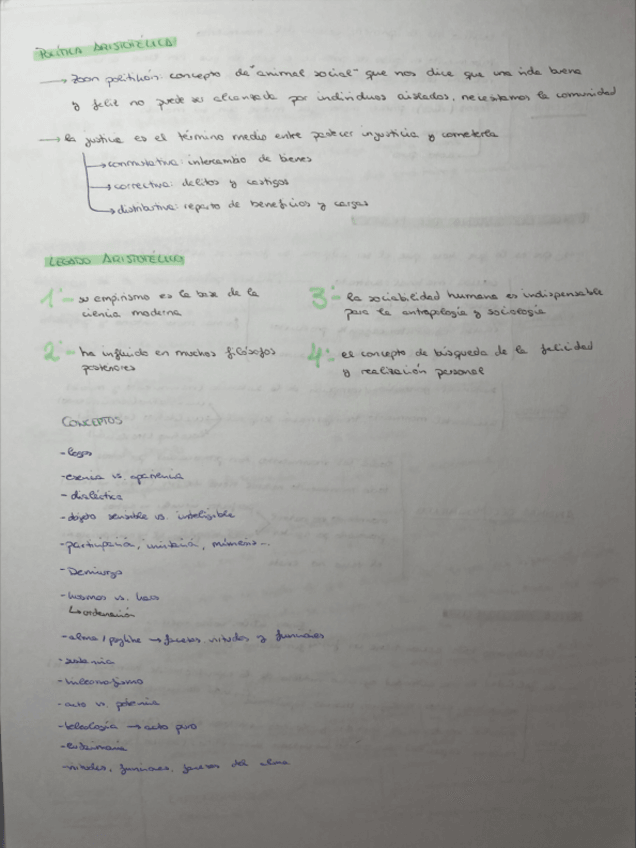 POLÍTICA ARISTOTÉLICA
→ Zoon politikón: concepto de "animal social" que nos dice que una vida buena
y feliz no puede ser alcanzada por individuos aislados, necesitamos la comunidad
→ la justicia es el término medio entre padecer injusticia y cometerla
→ conmutativa: intercambio de bienes
→ correctiva: delitos y castigos
→ distributiva: reparto de beneficios y cargas
LEGADO ARISTOTÉLICO
1º- su empirismo es la base de la
ciencia moderna
2º- ha influido en muchos filósofos
posteriores
3º- la sociabilidad humana es indispensable
para la antropología y sociología
4º- el concepto de búsqueda de la felicidad
y realización personal
CONCEPTOS
- logos
- esencia vs. apariencia
- dialéctica
- objeto sensible vs. inteligible
- participación, imitación, mímesis...
- Demiurgo
- kosmos vs. kaos
↳ ordenación
- alma / psykhe → partes, virtudes y funciones
- sustancia
- hilemorfismo
- acto vs. potencia
- teleología → acto puro
- eudaimonia
- virtudes, funciones, partes del alma